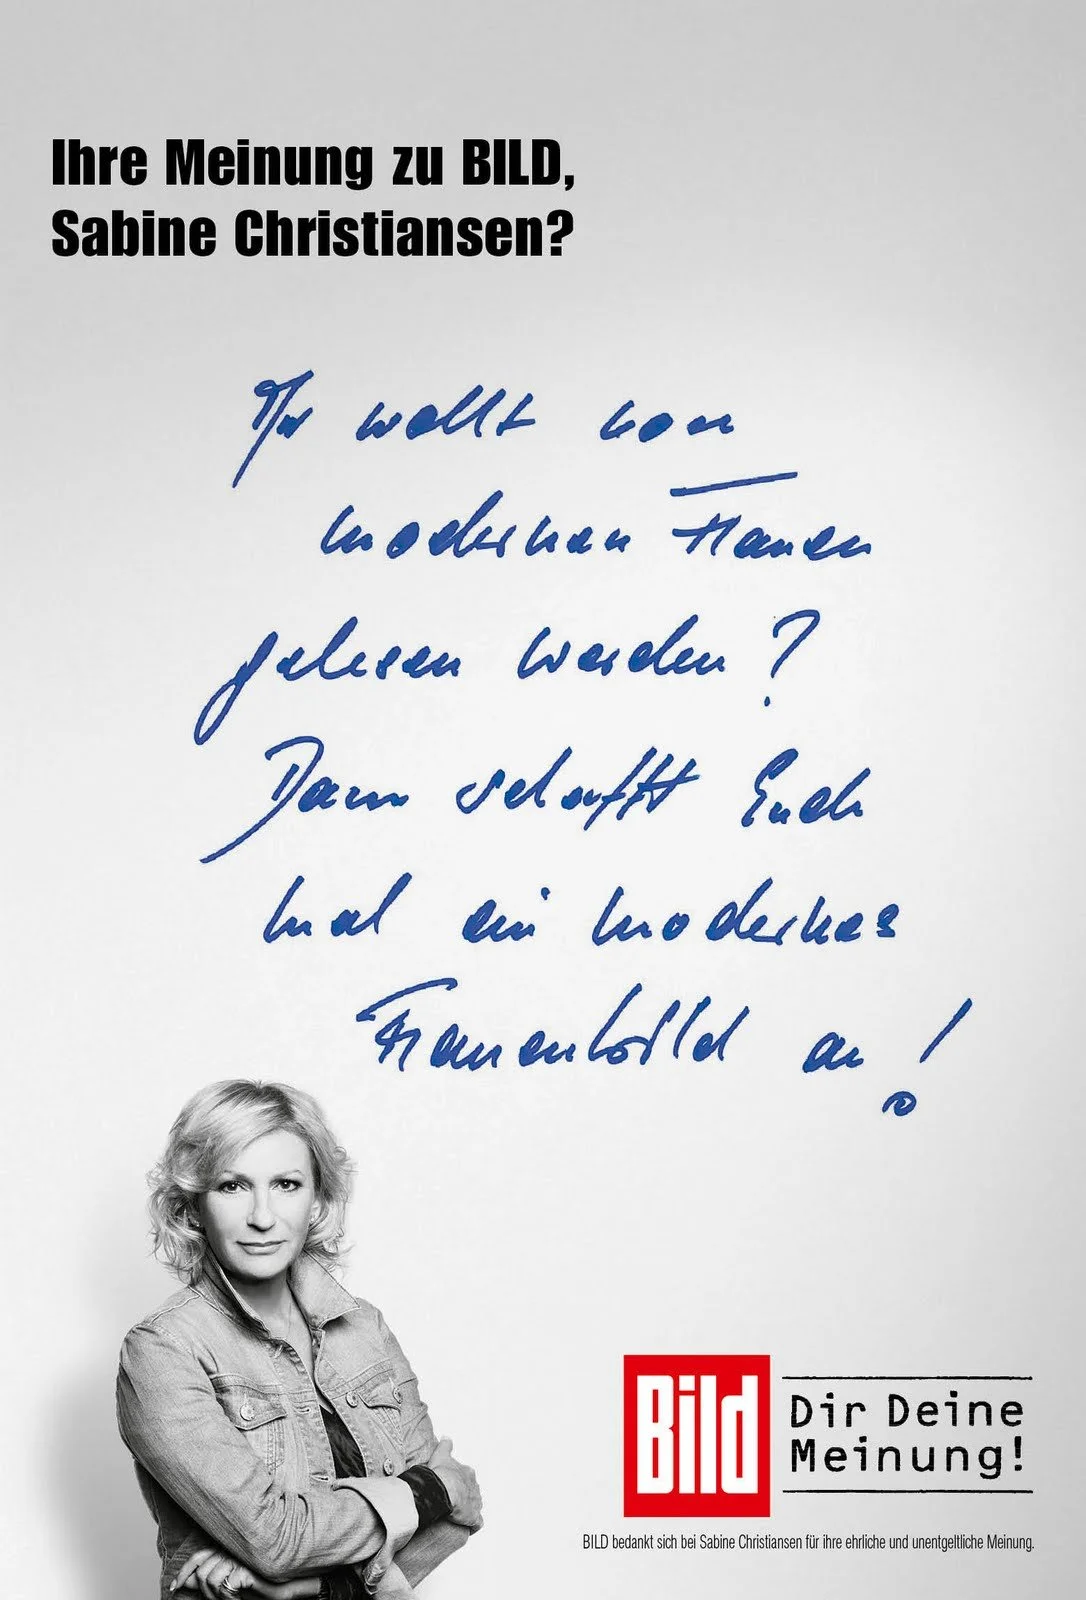 Ihre Meinung zu BILD,
Sabine Christiansen?
Ihr wollt von
modernen Frauen
gelesen werden?
Dann schafft Euch
mal ein modernes
Frauenbild an!
Bild
Dir Deine
Meinung!
BILD bedankt sich bei Sabine Christiansen für ihre ehrliche und unentgeltliche Meinung.